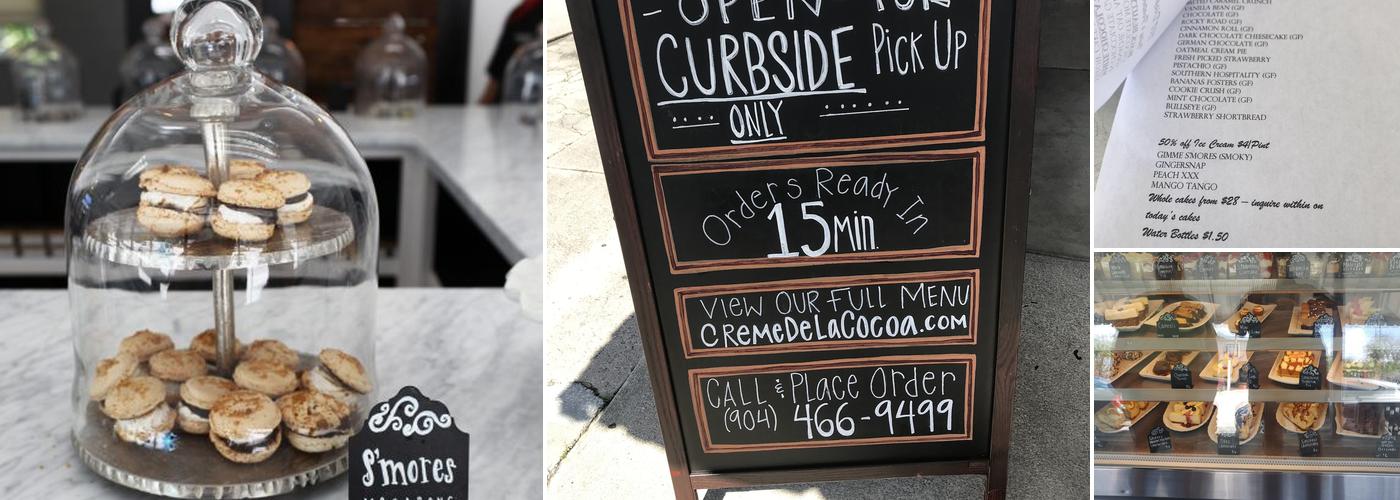 S'mores
MACARONS
- OPEN FOR
CURBSIDE Pick Up
ONLY
Orders Ready In
15 Min.
VIEW OUR FULL MENU
CREMEDELACOCOA.COM
CALL & Place Order
(904) 466-9499
SALTED CARAMEL CRUNCH
VANILLA BEAN (GF)
CHOCOLATE (GF)
ROCKY ROAD (GF)
CINNAMON ROLL (GF)
DARK CHOCOLATE CHEESECAKE (GF)
GERMAN CHOCOLATE (GF)
OATMEAL CREAM PIE
FRESH PICKED STRAWBERRY
PISTACHIO (GF)
SOUTHERN HOSPITALITY (GF)
BANANAS FOSTERS (GF)
COOKIE CRUSH (GF)
MINT CHOCOLATE (GF)
BULLSEYE (GF)
STRAWBERRY SHORTBREAD
50% off Ice Cream $4/Pint
GIMME S'MORES (SMOKY)
GINGERSNAP
PEACH XXX
MANGO TANGO
Whole cakes from $28 – inquire within on
today's cakes
Water Bottles $1.50